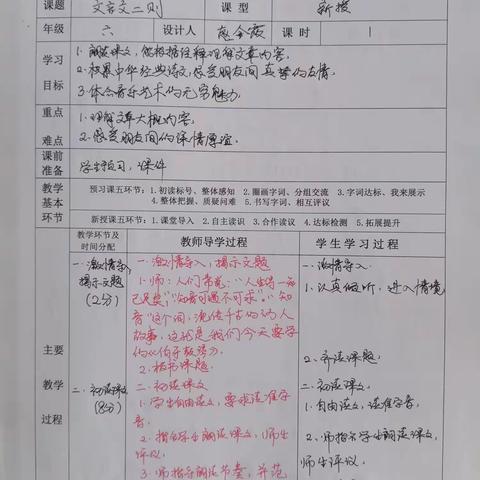 课题 文言文二则 课型 新授
年级 六 设计人 课时 1
学习目标
1、朗读课文,能根据注释理解文章内容。
2、积累中华经典诗文,感受朋友间真挚的友情。
3、体会音乐艺术的无穷魅力。
重点难点
1、理解文章大概内容。
2、感受朋友间的深情厚谊。
课前准备 学生预习,课件
教学基本环节
预习课五环节:1.初读标号、整体感知 2.圈画字词、分组交流 3.字词达标、我来展示
4.整体把握、质疑问难 5.书写字词、相互评议
新授课五环节:1.课堂导入 2.自主读识 3.合作读议 4.达标检测 5.拓展提升
教学环节及时间分配 教师导学过程 学生学习过程
主要教学过程
一、激情导入,揭示文题
(2分)
一、激情导入,揭示文题
1、师:人们常说:“人生得一知
己足矣”,“知音可遇不可求”。“知
音”这个词,流传千古的动人
故事,这就是我们今天要学
的《伯牙鼓琴》。
2、板书课题。
一、激情导入
1、认真倾听,进入情境
2、齐读课题。
二、初读课文
(8分)
二、初读课文
1、学生自由读文,要求读准字
音。
2、指名学生朗读课文,师生
评议。
3、师指导朗读节奏,并范
二、初读课文
1、自由读文,读准字音。
2、师指名学生朗读课文,
师生评议。